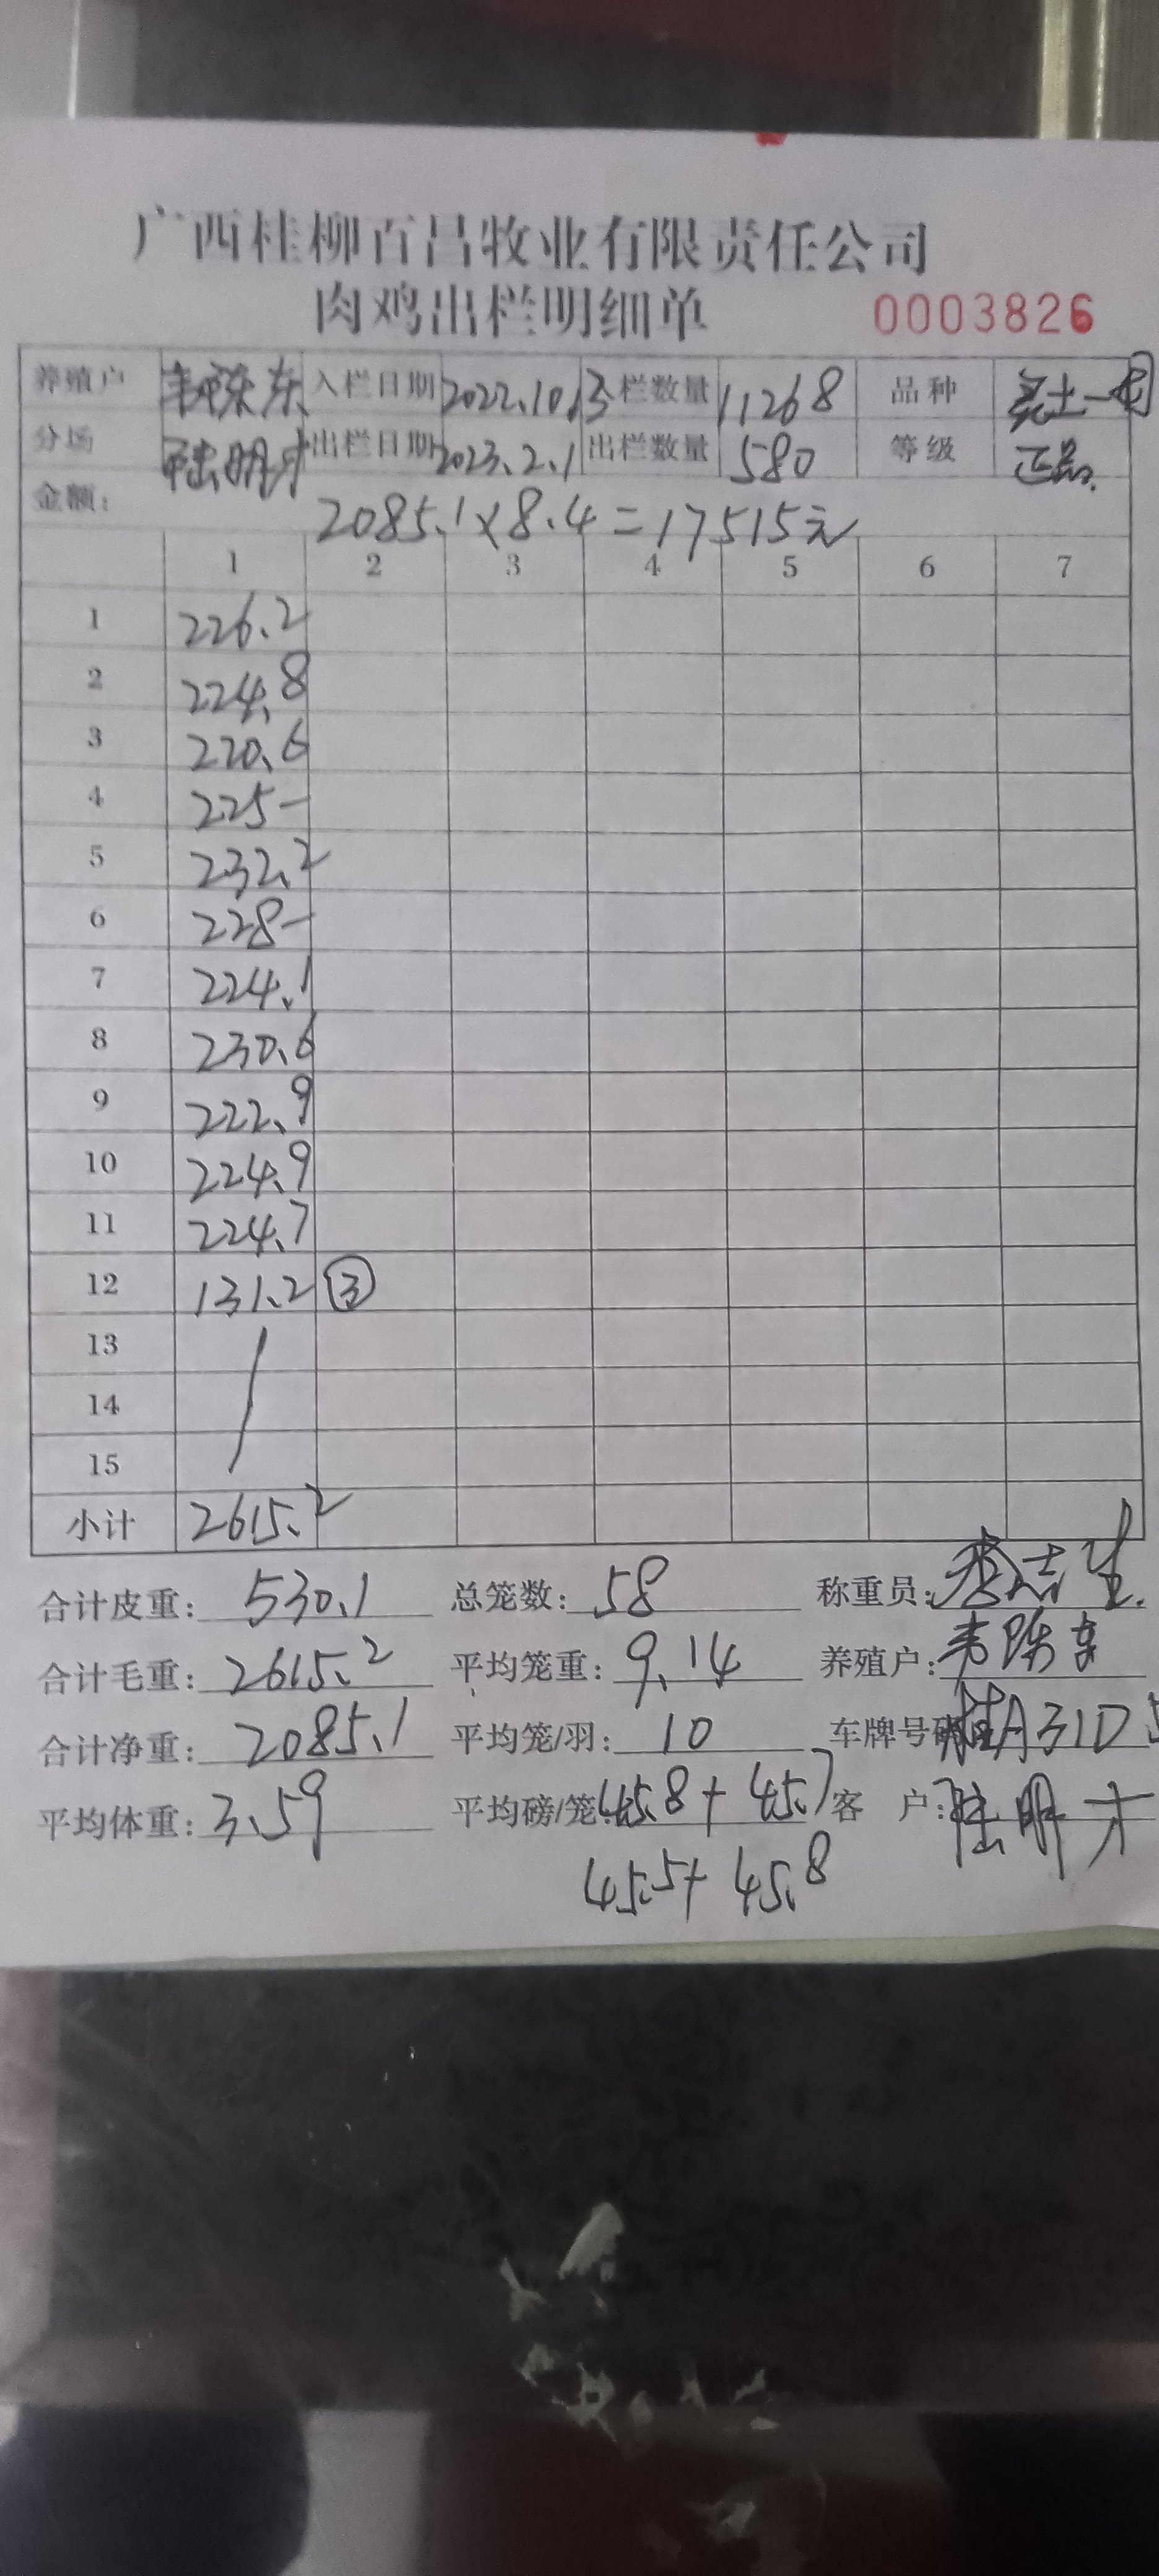 广西桂柳百昌牧业有限责任公司
肉鸡出栏明细单 0003826
养殖户 东 入栏日期 2022.10.13 栏数量 11268 品种 土一
分场 陆明才 出栏日期 2023.2.1 出栏数量 580 等级 正品.
金额: 2085.1×8.4=17515元
1 2 3 4 5 6 7
1 226.2
2 224.8
3 220.6
4 225-
5 232.2
6 228-
7 224.1
8 230.6
9 222.9
10 224.9
11 224.7
12 131.2 ③
13
14
15
小计 2615.2
合计皮重: 530.1 总笼数: 58 称重员: 志
合计毛重: 2615.2 平均笼重: 9.14 养殖户: 韦
合计净重: 2085.1 平均笼/羽: 10 车牌号码 桂A31D5
平均体重: 3.59 平均磅/笼: 45.8+45.7 客 户: 陆明才
45.5+45.8